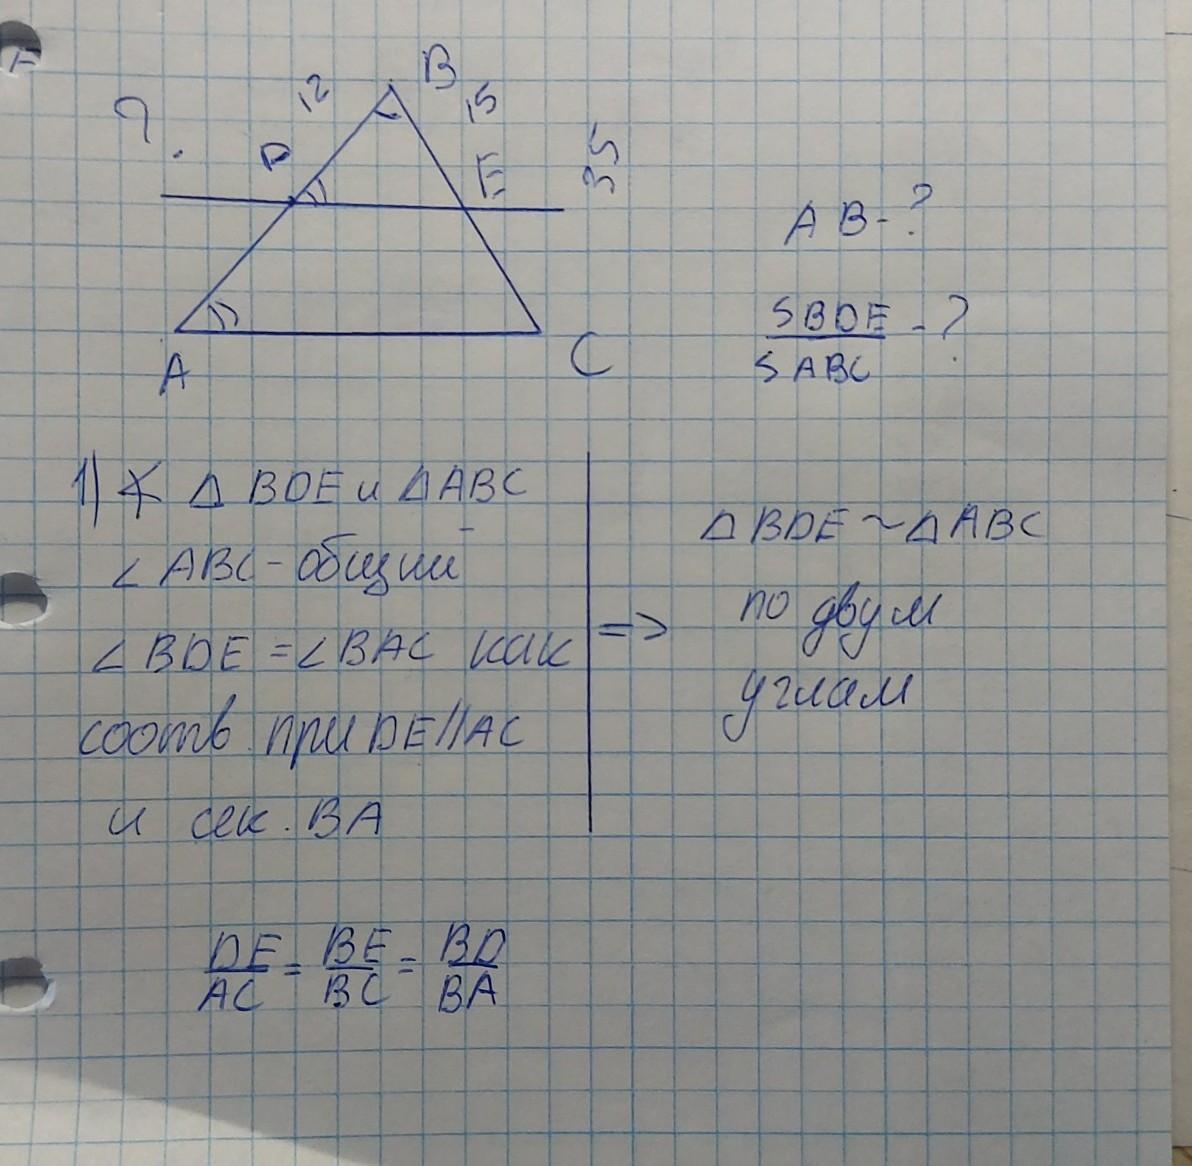 B
12
15
?
D
E
35
A
C
AB-?
SBDE
SABC
-?
1) ∢ △ BDE и △ABC
∠ ABC - общий
∠ BDE = ∠ BAC как
соотв. при DE//AC
и сек. BA
=>
△ BDE ~ △ ABC
по двум
углам
DE/AC = BE/BC = BD/BA